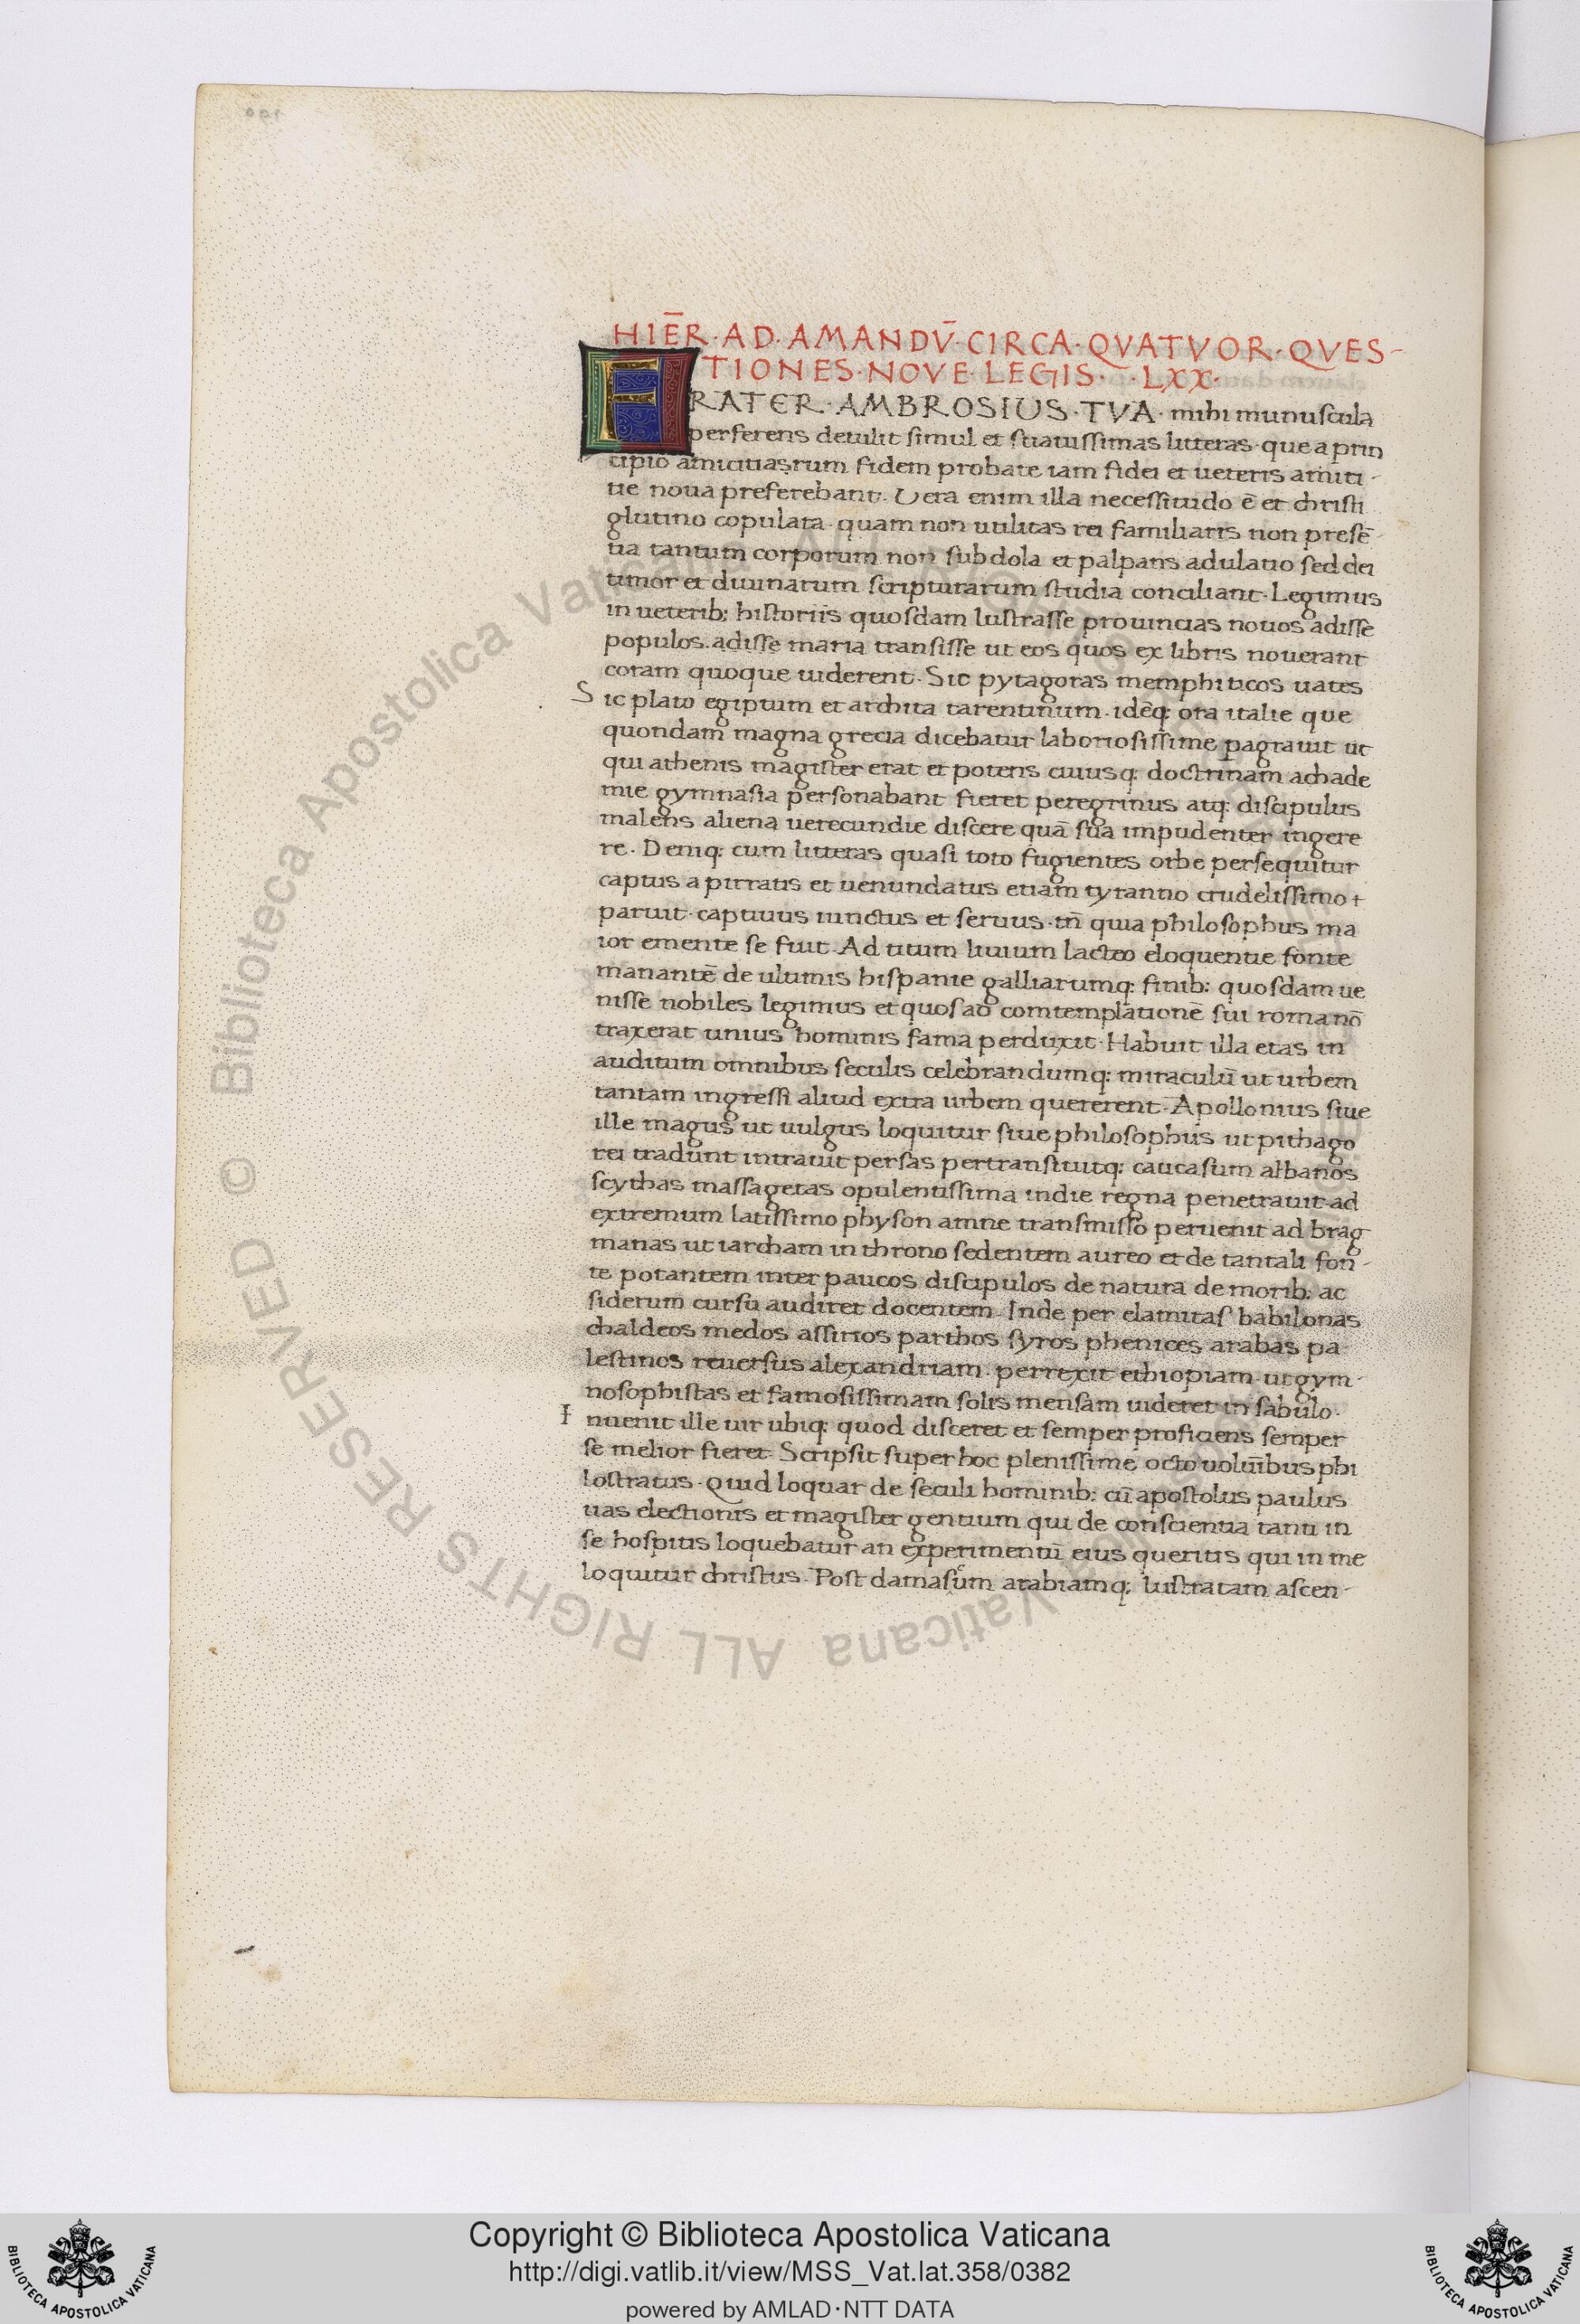 HIER̄·AD·AMANDV̄·CIRCA·QVATVOR·QVES-
TIONES·NOVE·LEGIS· ·LXX·
FRATER·AMBROSIUS·TVA· mihi munuscula
perferens detulit simul et suauissimas litteras· que a prin
cipio amicitiarum fidem probate iam fidei et ueteris amiti-
tie noua preferebant· Vera enim illa necessitudo ē et christi
glutino copulata· quam non utilitas rei familiaris non presē
tia tantum corporum non subdola et palpans adulatio sed dei
timor et diuinarum scripturarum studia conciliant· Legimus
in ueterib; historiis quosdam lustrasse prouincias nouos adisse
populos. maria transisse ut eos quos ex libris nouerant
coram quoque uiderent· Sic pytagoras memphiticos uates
Sic plato egiptum et archita tarentinum· idēq; ora italie que
quondam magna grecia dicebatur laboriosissime pagrauit ut
qui athenis magister erat et potens cuiusq; doctrinam achade
mie gymnasia personabant fieret peregrinus atq; discipulus
malens aliena uerecundie discere quā sua impudenter ingere
re· Deniq; cum litteras quasi toto fugientes orbe persequitur
captus a pirratis et uenundatus etiam tyranno crudelissimo +
paruit· captiuus iunctus et seruus· tn̄ quia philosophus ma
ior emente se fuit· Ad titum liuium lacteo eloquentie fonte
manantē de ulumis hispanie galliarumq; finib; quosdam ue
nisse nobiles legimus et quos ad comtemplationē sui romanō
traxerat unius hominis fama perduxit· Habuit illa etas in
auditum omnibus seculis celebrandumq; miraculū ut urbem
tantam ingressi aliud extra urbem quererent· Apollonius siue
ille magus ut uulgus loquitur siue philosophus ut pithago
rei tradunt intrauit persas pertransiuitq; caucasum albanos
scythas massagetas opulentissima indie regna penetrauit· ad
extremum latissimo physon amne transmisso peruenit ad brag
manas ut iarcham in throno sedentem aureo et de tantali fon-
te potantem inter paucos discipulos de natura de morib; ac
siderum cursu audiret docentem· Inde per elamitas babilonas
chaldeos medos assirios parthos syros phenices arabas pa
lestinos reuersus alexandriam· perrexit ethiopiam· ut gym-
nosophistas et famosissimam solis mensam uideret in sabulo·
Inuenit ille uir ubiq; quod disceret et semper proficiens semper
se melior fieret· Scripsit super hoc plenissime octo uolūibus phi
lostratus· Quid loquar de seculi hominib; cū apostolus paulus
uas electionis et magister gentium qui de conscientia tanti in
se hospitis loquebatur an experimentū eius queritis qui in me
loquitur christus· Post damascum arabiamq; lustratam ascen-
Biblioteca Apostolica Vaticana ALL RIGHTS RESERVED ©
Copyright © Biblioteca Apostolica Vaticana
http://digi.vatlib.it/view/MSS_Vat.lat.358/0382
powered by AMLAD·NTT DATA
BIBLIOTECA APOSTOLICA VATICANA
BIBLIOTECA APOSTOLICA VATICANA